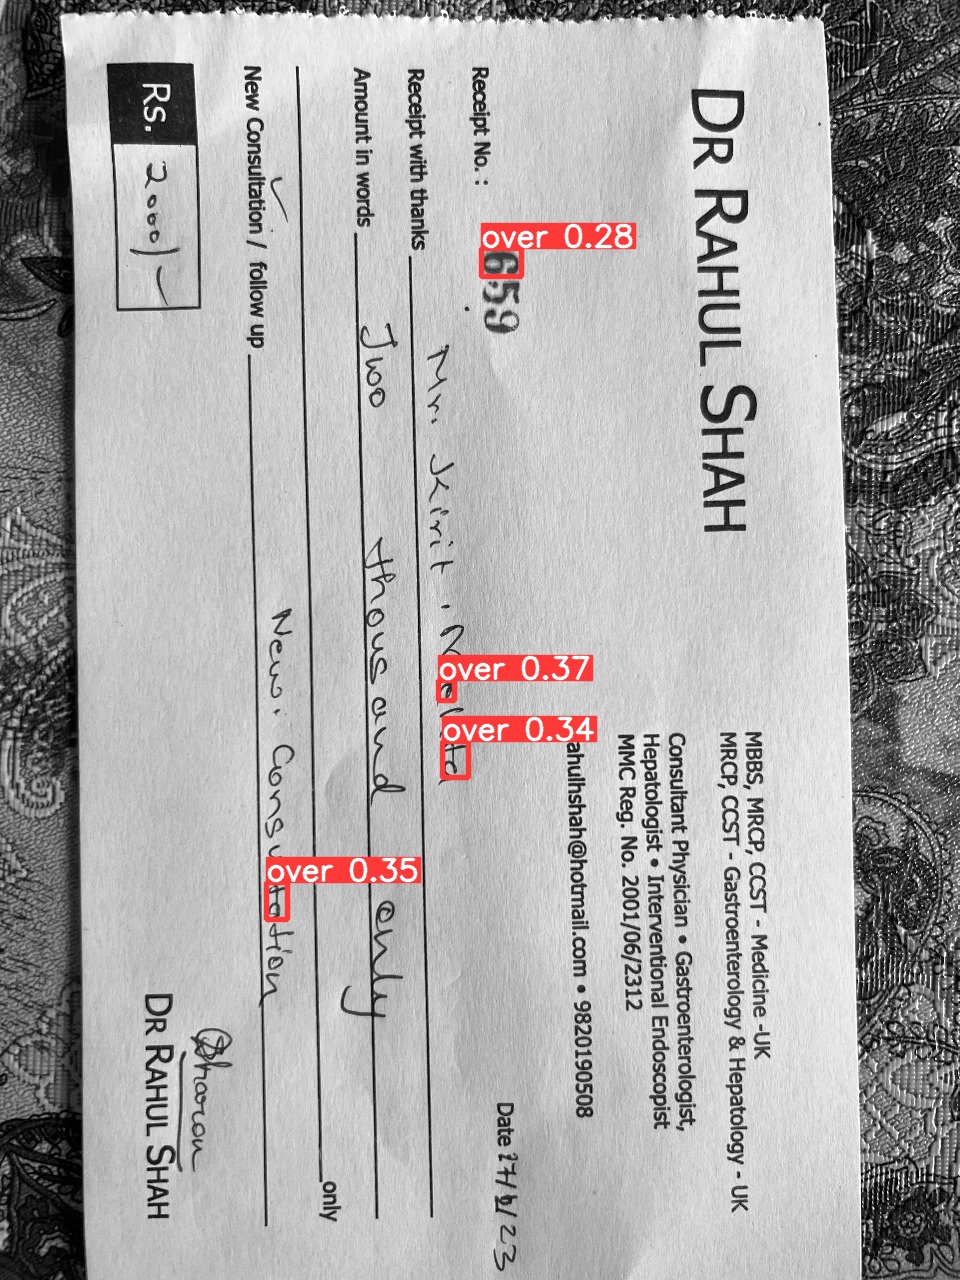 DR RAHUL SHAH
MBBS, MRCP, CCST - Medicine -UK
MRCP, CCST - Gastroenterology & Hepatology - UK
Consultant Physician • Gastroenterologist,
Hepatologist • Interventional Endoscopist
MMC Reg. No. 2001/06/2312
ahulhshah@hotmail.com • 9820190508
Receipt No. : 659
Date /23
Receipt with thanks Mr. Kirit.
Amount in words Two thousand only
only
New Consultation / follow up New. Consultation
Rs. 2000/-
Sharon
DR RAHUL SHAH
over 0.28
over 0.37
over 0.34
over 0.35